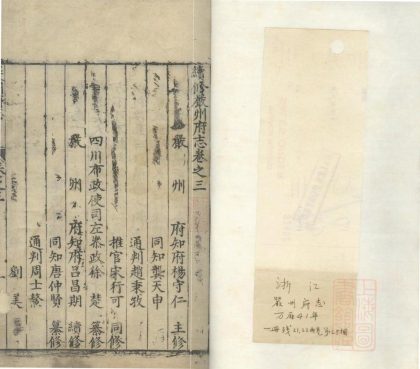 續修嚴州府志卷之三
嚴州府知府楊守仁主修
同知龔天申
通判趙東牧
推官宋行可同修
四川布政使司左參政徐楚纂修
嚴州府知府呂昌期續修
同知唐仲賢纂修
通判周士
劉美
浙江
嚴州府志
万历41年
上海圖